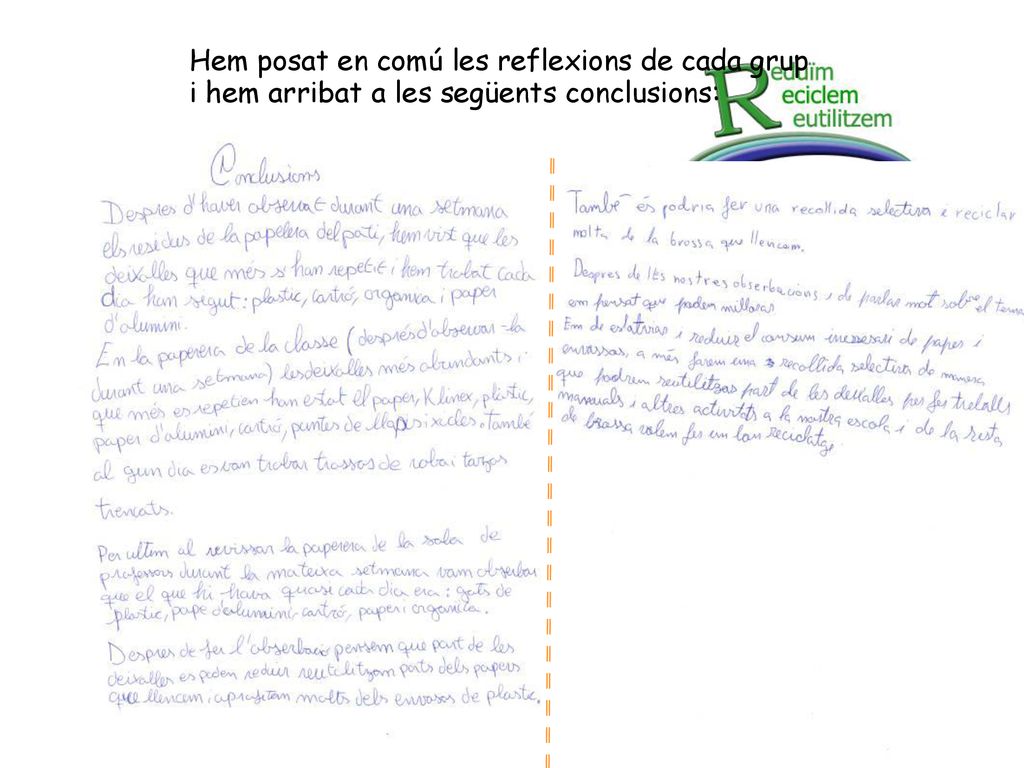 Hem posat en comú les reflexions de cada grup
i hem arribat a les següents conclusions:
Reduïm
Reciclem
Reutilitzem
Conclusions
Despres d'haver observat durant una setmana
els residus de la papelera del pati, hem vist que les
deixalles que més s'han repetit i hem trobat cada
dia han segut: plastic, cartró, organica i paper
d'alumini.
En la paperera de la classe (després d'observar-la
durant una setmana) les deixalles més abundants i
que més es repetien han estat el paper, Klinex, plàstic,
paper d'alumini, cartró, puntes de llapis i xicles. També
al gun dia es van trobar trossos de roba i tarzos
trencats.
Per ultim al revissar la paperera de la sala de
professors durant la mateixa setmana vam obserbar
que el que hi havia quasi cada dia era: gots de
plastic, pape d'alumini, cartró, paper i organica.
Despres de fer l'obserbació pensem que part de les
deixalles es poden reduir reutilitzam parts dels papers
que llencem i aprofitam molts dels envasos de plastic.
També és podria fer una recollida selectiva i reciclar
molta de la brossa que llencem.
Despres de les nostres obserbacions i de parlar mot sobre el tema
em pensat que podem millorar
Em de estalviar i reduir el consum inecesari de paper i
envassos, a més farem una recollida selectiva de manera
que podrem reutilitzar part de les deixalles per fer treballs
manuals i altres activitats a la nostra escola i de la resta
de brossa volem fer un bon reciclatge.